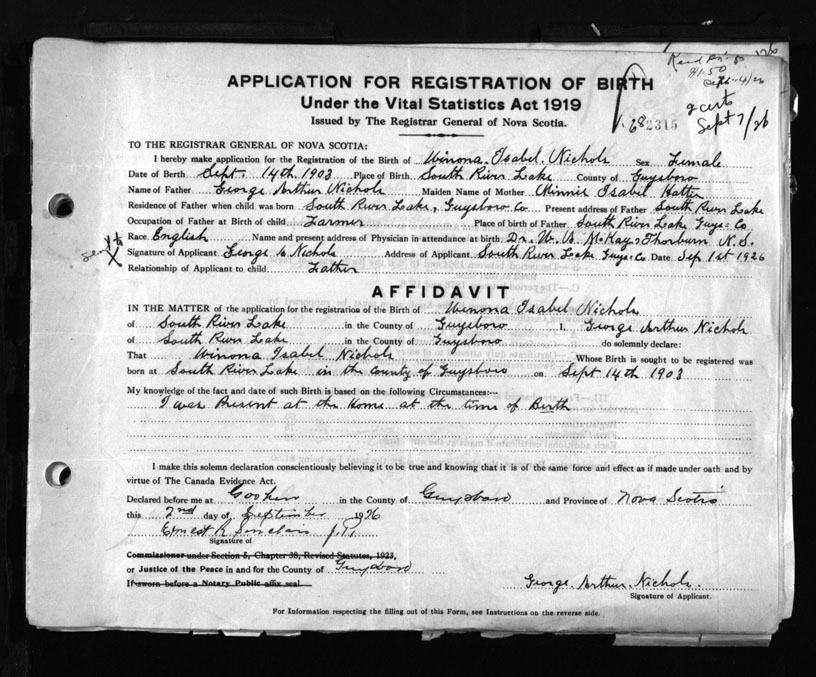 Recd
$1.50
Sept 4/26
2 certs
Sept 7/26
APPLICATION FOR REGISTRATION OF BIRTH
Under the Vital Statistics Act 1919
Issued by The Registrar General of Nova Scotia.
682315
TO THE REGISTRAR GENERAL OF NOVA SCOTIA:
I hereby make application for the Registration of the Birth of Winona Isabel Nichols Sex Female
Date of Birth Sept. 14th 1903 Place of Birth South River Lake County of Guysboro
Name of Father George Arthur Nichols Maiden Name of Mother Minnie Isabel Hattie
Residence of Father when child was born South River Lake, Guysboro Co Present address of Father South River Lake
Occupation of Father at Birth of child Farmer Place of birth of Father South River Lake Guys. Co
Race English Name and present address of Physician in attendance at birth Dr. W. McKay, Thorburn N.S.
Signature of Applicant George A Nichols Address of Applicant South River Lake Guys. Co Date Sep 1st 1926
Relationship of Applicant to child Father
AFFIDAVIT
IN THE MATTER of the application for the registration of the Birth of Winona Isabel Nichols
of South River Lake in the County of Guysboro I, George Arthur Nichols
of South River Lake in the County of Guysboro do solemnly declare:
That Winona Isabel Nichols Whose Birth is sought to be registered was
born at South River Lake in the County of Guysboro on Sept 14th 1903
My knowledge of the fact and date of such Birth is based on the following Circumstances:—
I was Present at the Home at the time of Birth
I make this solemn declaration conscientiously believing it to be true and knowing that it is of the same force and effect as if made under oath and by
virtue of The Canada Evidence Act.
Declared before me at Goshen in the County of Guysboro and Province of Nova Scotia
this 2nd day of September 1926
Ernest R Sinclair J.P.
Signature of
Commissioner under Section 5, Chapter 38, Revised Statutes, 1923,
or Justice of the Peace in and for the County of Guysboro
If sworn before a Notary Public affix seal.
George Arthur Nichols.
Signature of Applicant.
For Information respecting the filling out of this Form, see Instructions on the reverse side.